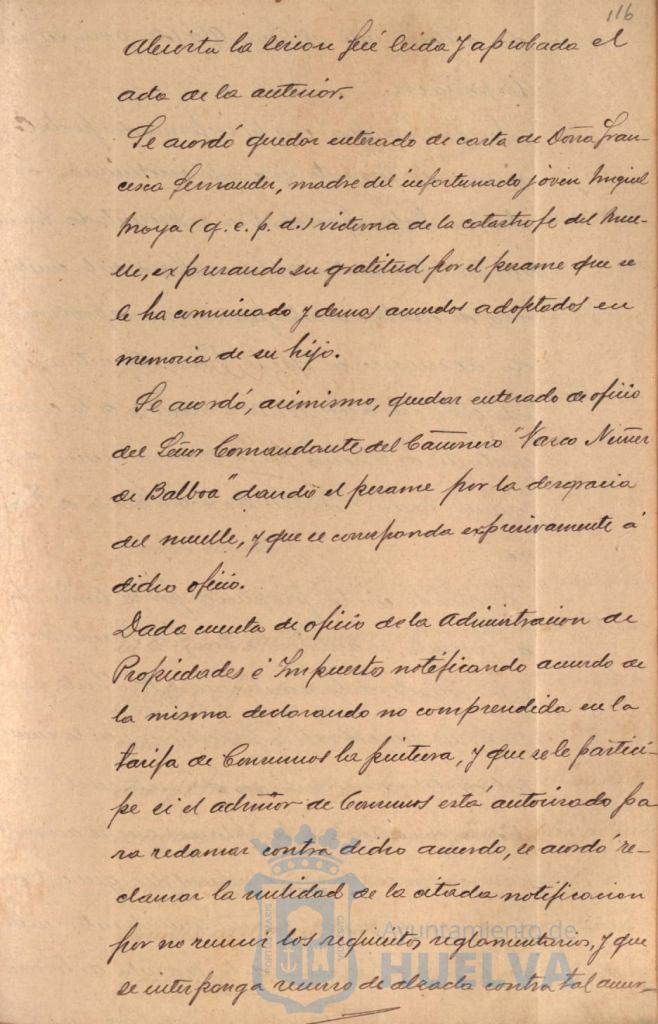 116
Abierta la sesion fué leida y aprobada el
acta de la anterior.
Se acordó quedar enterado de carta de Doña Fran-
cisca Fernandez, madre del infortunado joven Miguel
Moya (q. e. p. d.) victima de la catastrofe del Mue-
lle, expresando su gratitud por el pesame que se
le ha comunicado y demas acuerdos adoptados en
memoria de su hijo.
Se acordó, asimismo, quedar enterado de oficio
del Señor Comandante del Cañonero "Vasco Nuñez
de Balboa" dando el pesame por la desgracia
del muelle, y que se corresponda expresivamente á
dicho oficio.
Dada cuenta de oficio de la Administracion de
Propiedades é Impuestos notificando acuerdo de
la misma declarando no comprendida en la
tarifa de Consumos la , y que se le partici-
pe si el admtor de Consumos está autorizado pa
ra reclamar contra dicho acuerdo, se acordó re-
clamar la nulidad de la citada notificacion
por no reunir los requisitos reglamentarios, y que
se interponga recurso de alzada contra tal acuer-
Ayuntamiento de
HUELVA